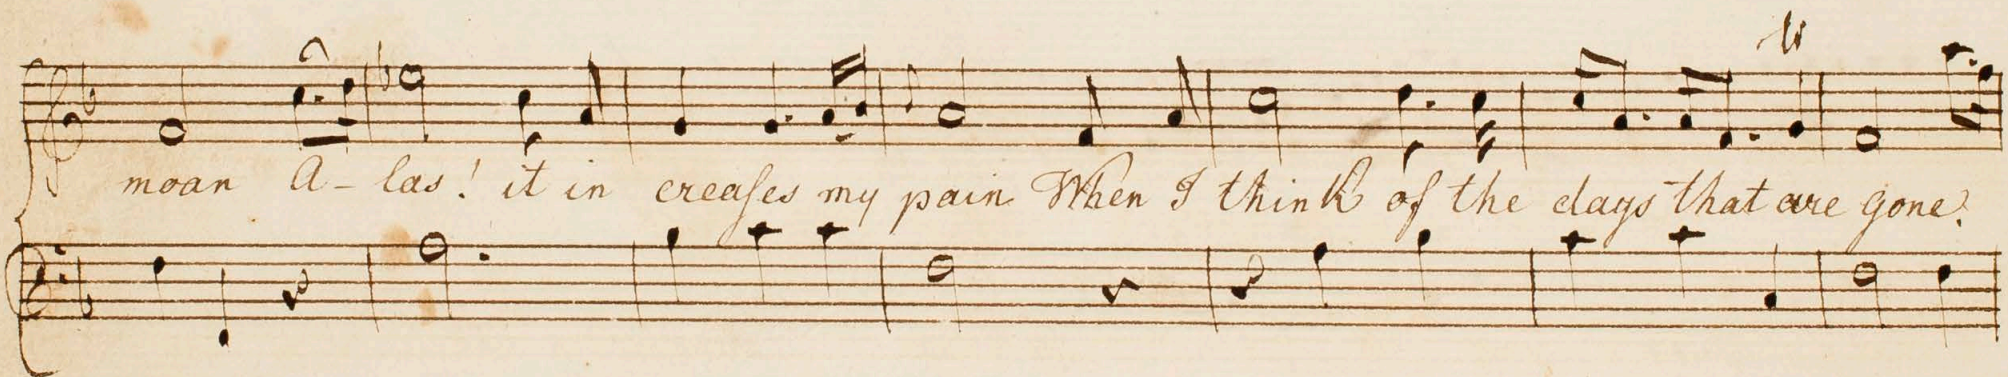 tr
moan A-las! it in creaſes my pain When I think of the days that are gone.